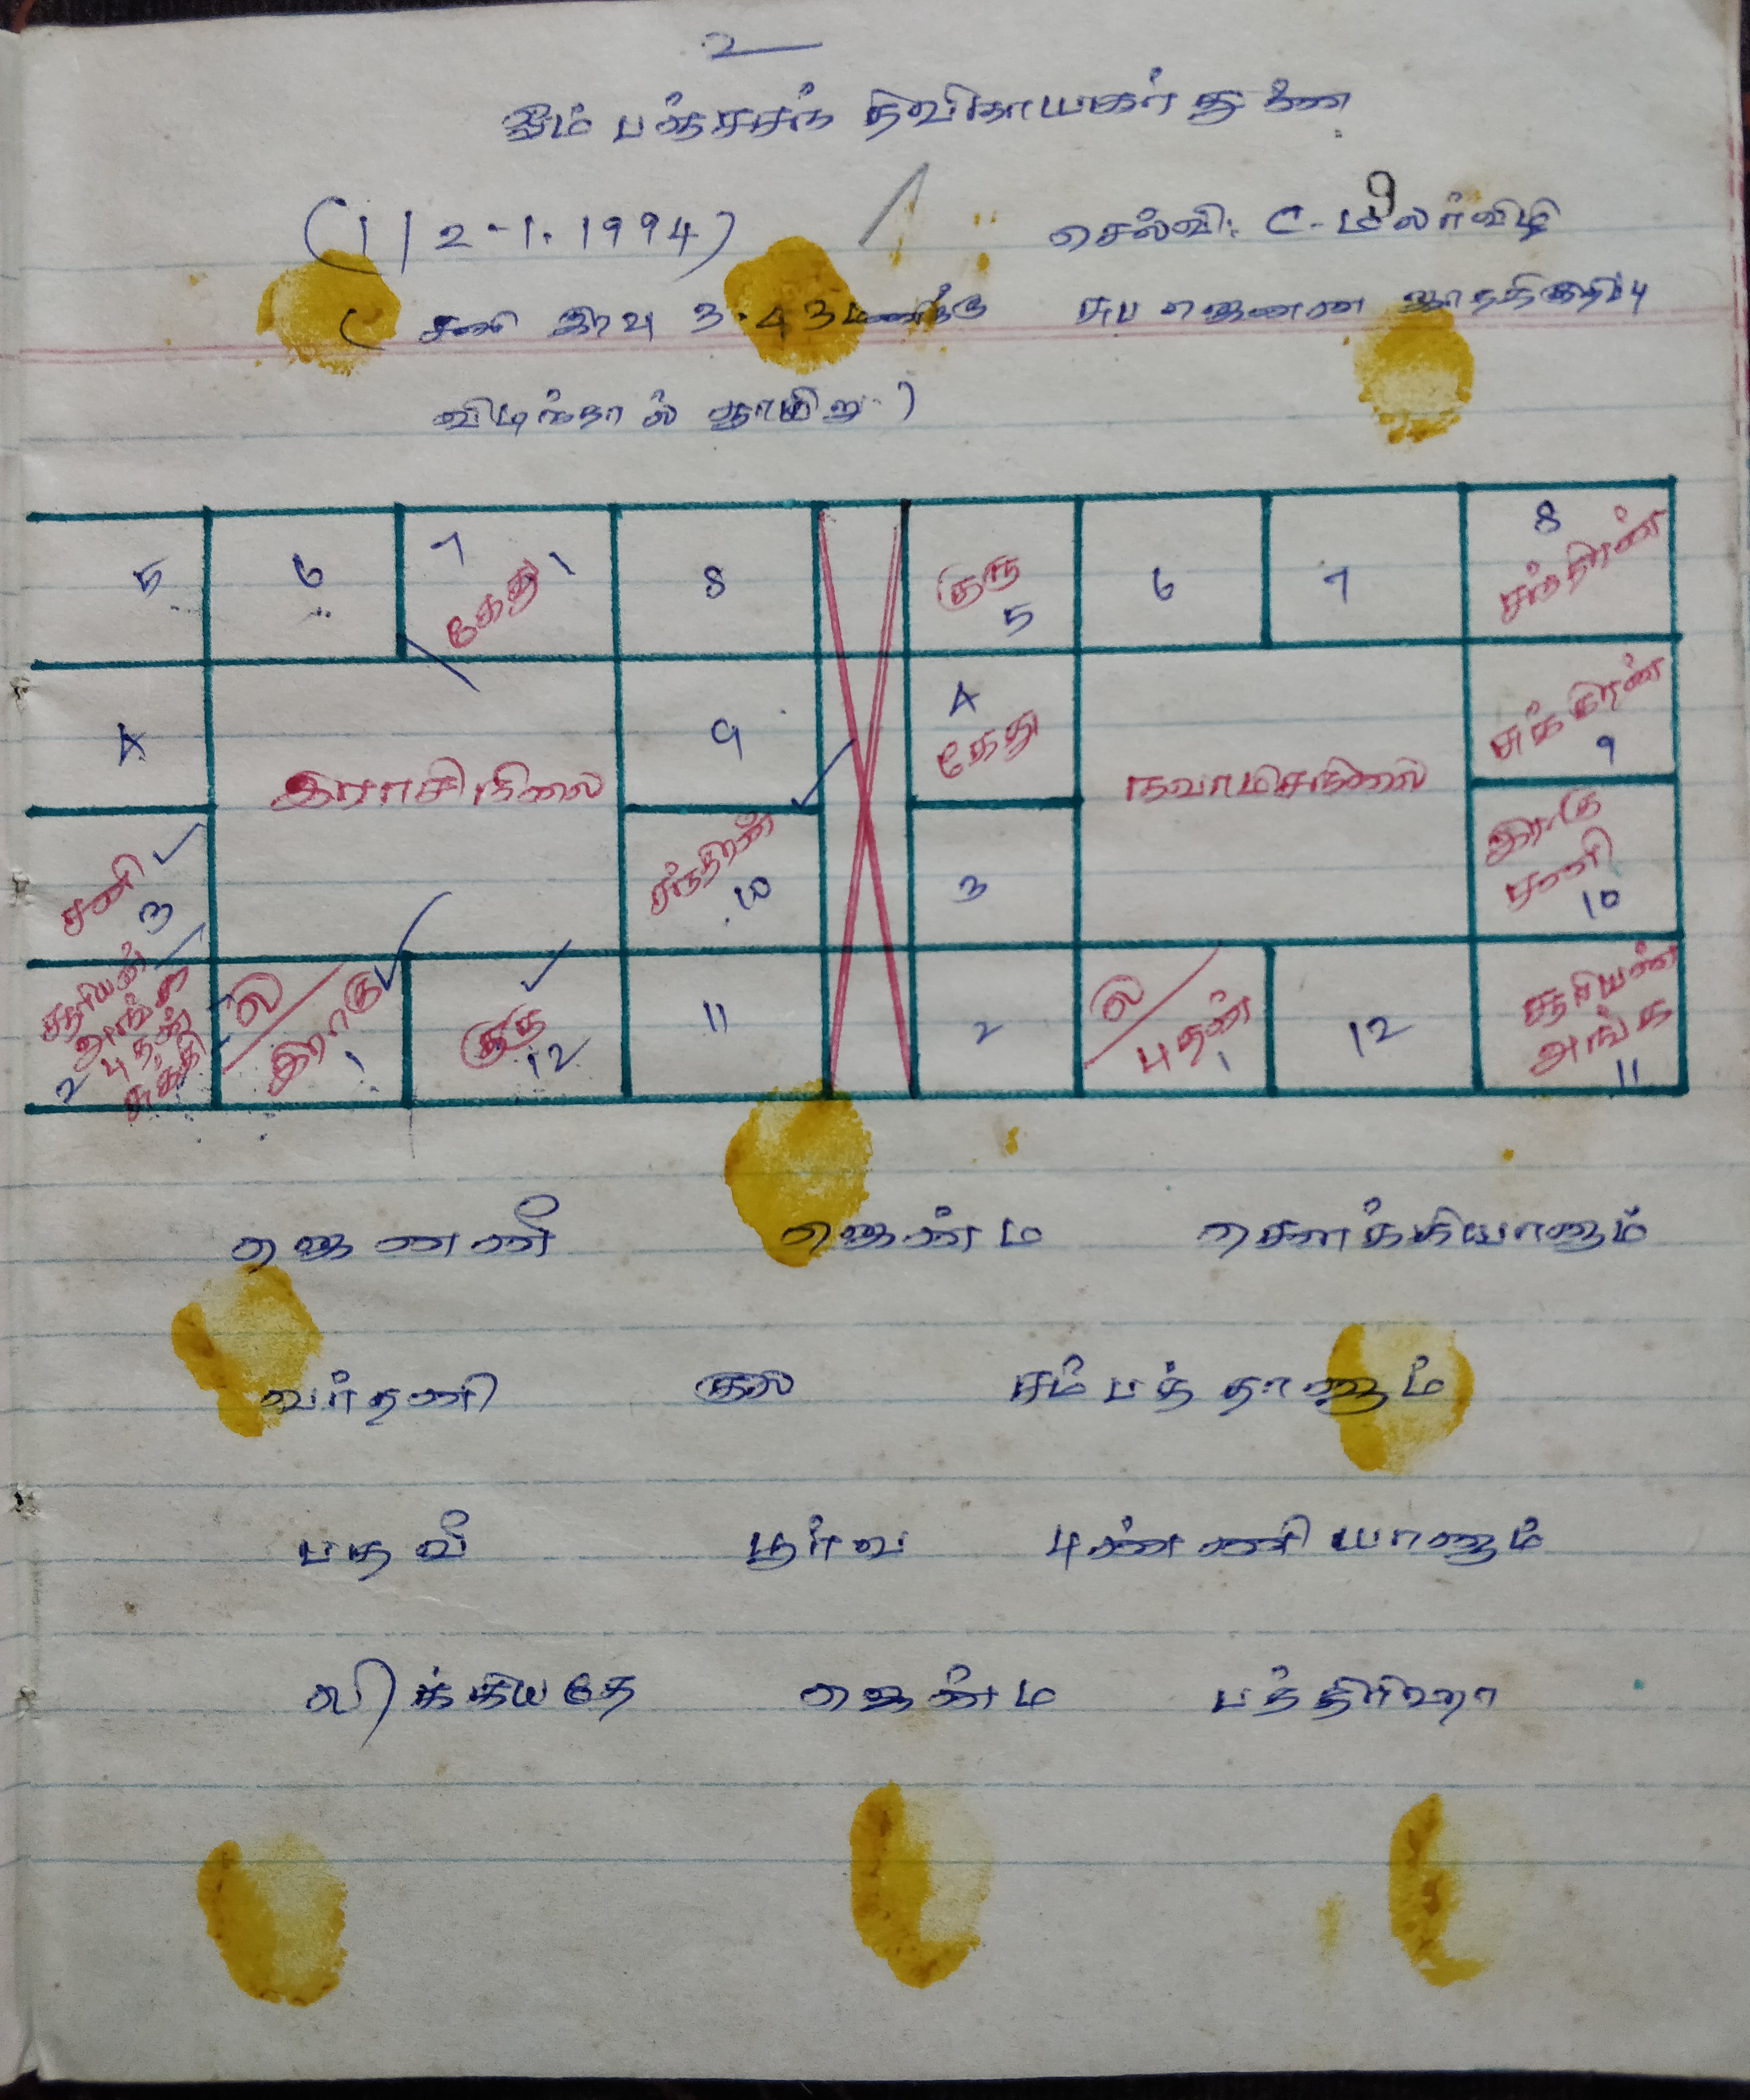 உ
ஓம் பக்தசந் திவிநாயகர் துணை
(1 / 2-1.1994) செல்வி: C. மலர்விழி
(சனி இரவு 3.43 மணிக்கு சுப ஜெனன ஜாதகக்குறிப்பு
விடிந்தால் ஞாயிறு)
5 6 7 கேது 8 குரு 5 6 7 8 சந்திரன்
4 இராசிநிலை 9 4 கேது நவாம்சநிலை சுக்கிரன் 9
சனி 3 சந்திரன் 10 3 இராகு சனி 10
சூரியன் அங் புதன் சுக்கி 2 ல/ இராகு 1 குரு 12 11 2 ல/ புதன் 1 12 சூரியன் அங்க 11
ஜெனனீ ஜென்ம சௌக்கியானாம்
வர்தனி குல சம்பத்தானாம்
பதவீ பூர்வ புண்ணியானாம்
லிக்கியதே ஜென்ம பத்திரிஹா